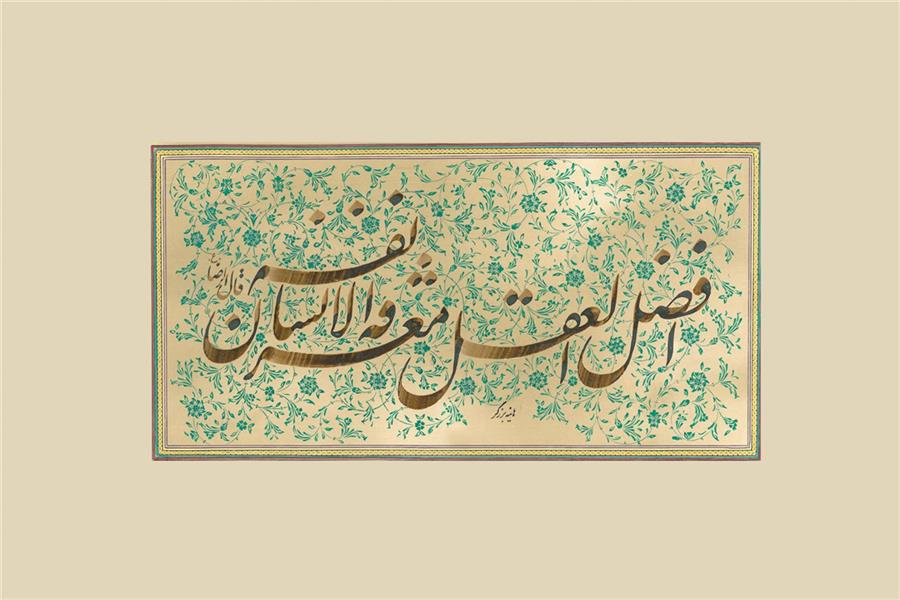 افضل العقل معرفة الانسان نفسه
قال الرضا